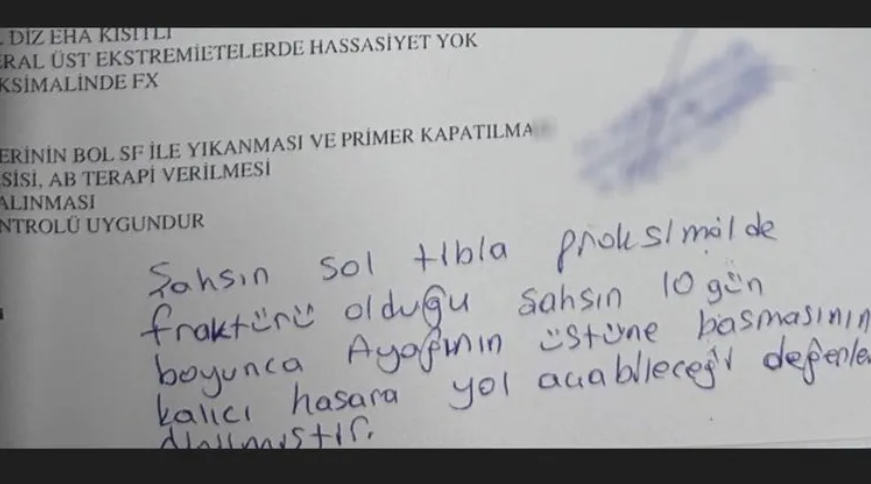 DİZ EHA KISITLI
ERAL ÜST EKSTREMİETELERDE HASSASİYET YOK
KSİMALİNDE FX
ERİNİN BOL SF İLE YIKANMASI VE PRİMER KAPATILMA
SİSİ, AB TERAPİ VERİLMESİ
ALINMASI
NTROLÜ UYGUNDUR
Şahsın sol tibia proksimalde
fraktürü olduğu şahsın 10 gün
boyunca Ayağının üstüne basmasının
kalıcı hasara yol açabileceği değerlen
dirilmiştir.